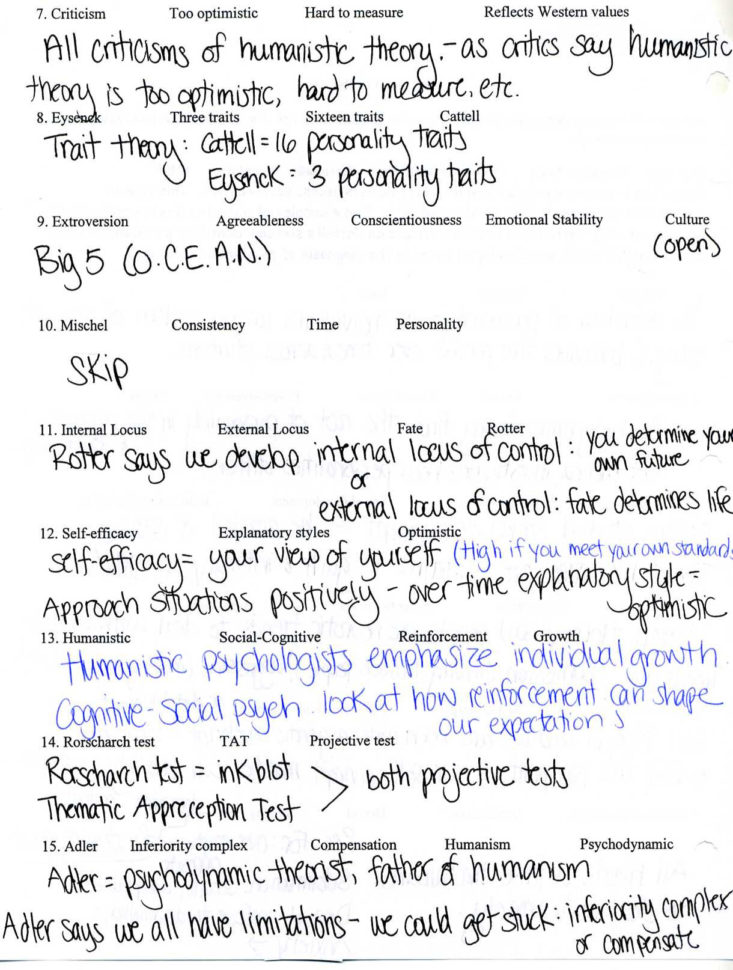 7. Criticism Too optimistic Hard to measure Reflects Western values
All criticisms of humanistic theory. - as critics say humanistic
theory is too optimistic, hard to measure, etc.
8. Eysenck Three traits Sixteen traits Cattell
Trait theory: Cattell = 16 personality traits
Eysenck = 3 personality traits
9. Extroversion Agreeableness Conscientiousness Emotional Stability Culture
Big 5 (O.C.E.A.N.) (open)
10. Mischel Consistency Time Personality
Skip
11. Internal Locus External Locus Fate Rotter
Rotter says we develop internal locus of control: you determine your
own future
or
external locus of control: fate determines life
12. Self-efficacy Explanatory styles Optimistic
self-efficacy = your view of yourself (High if you meet your own standards
Approach situations positively - over time explanatory style =
optimistic
13. Humanistic Social-Cognitive Reinforcement Growth
Humanistic psychologists emphasize individual growth
Cognitive-Social psych. look at how reinforcement can shape
our expectations
14. Rorscharch test TAT Projective test
Rorscharch test = inkblot
> both projective tests
Thematic Appreception Test
15. Adler Inferiority complex Compensation Humanism Psychodynamic
Adler = psychodynamic theorist, father of humanism
Adler says we all have limitations - we could get stuck = inferiority complex
or compensate